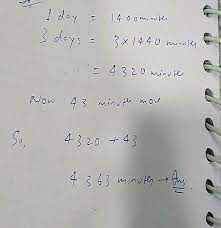 1 day = 1440 minutes
3 days = 3×1440 minutes
= 4320 minutes
Now 43 minutes more
So, 4320 + 43
4363 minutes → Ans